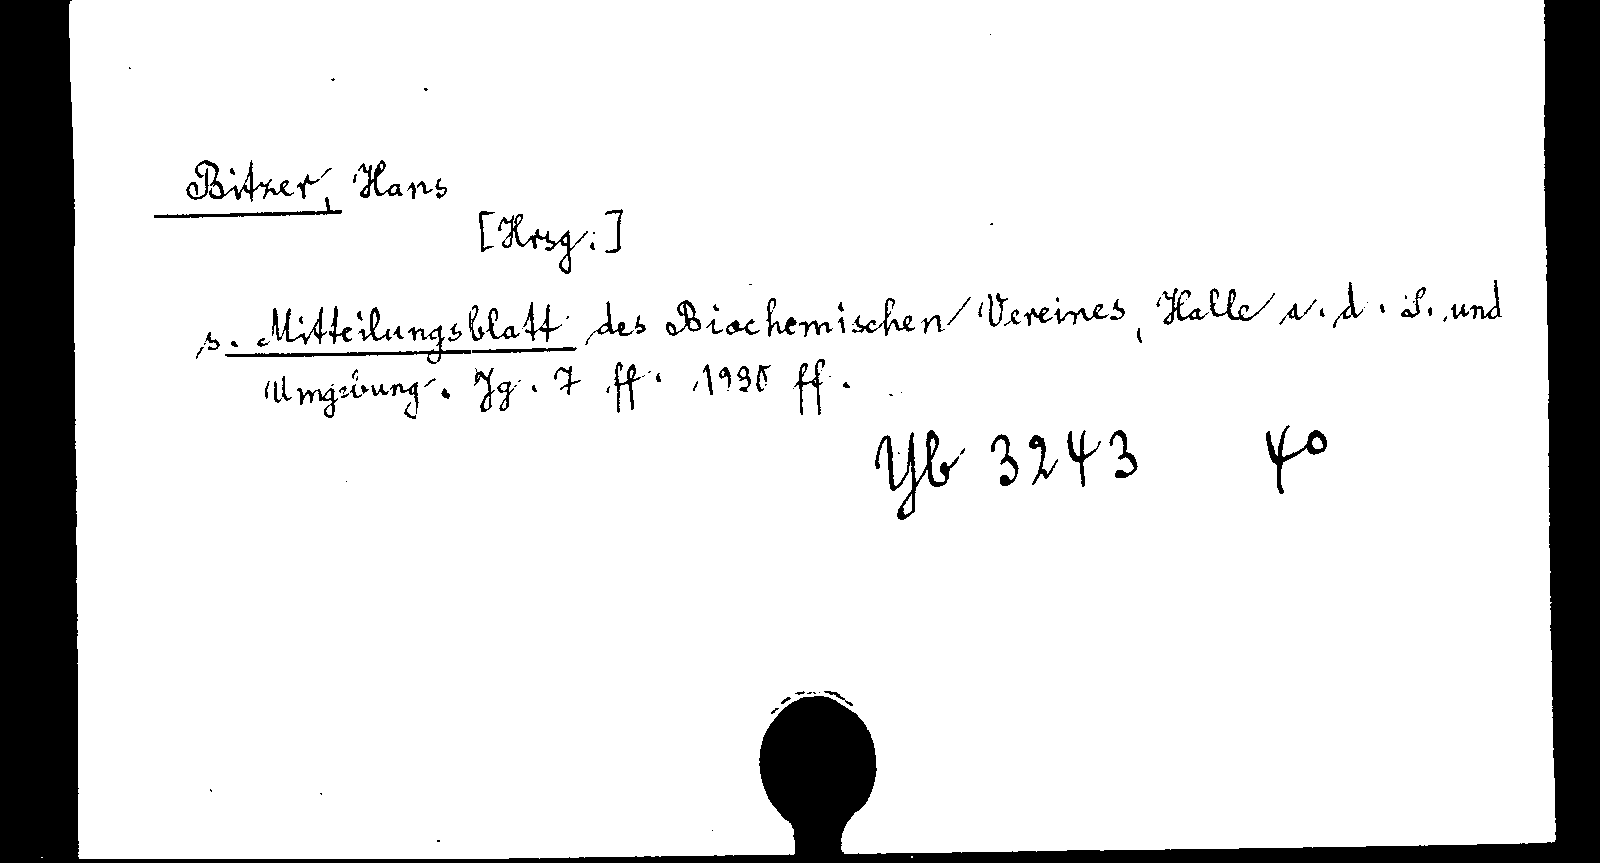 Bitzer, Hans
[Hrsg.]
s. Mitteilungsblatt des Biochemischen Vereines, Halle a. d. S. und
Umgebung. Jg. 7 ff. 1930 ff.
Yb 3243 4°